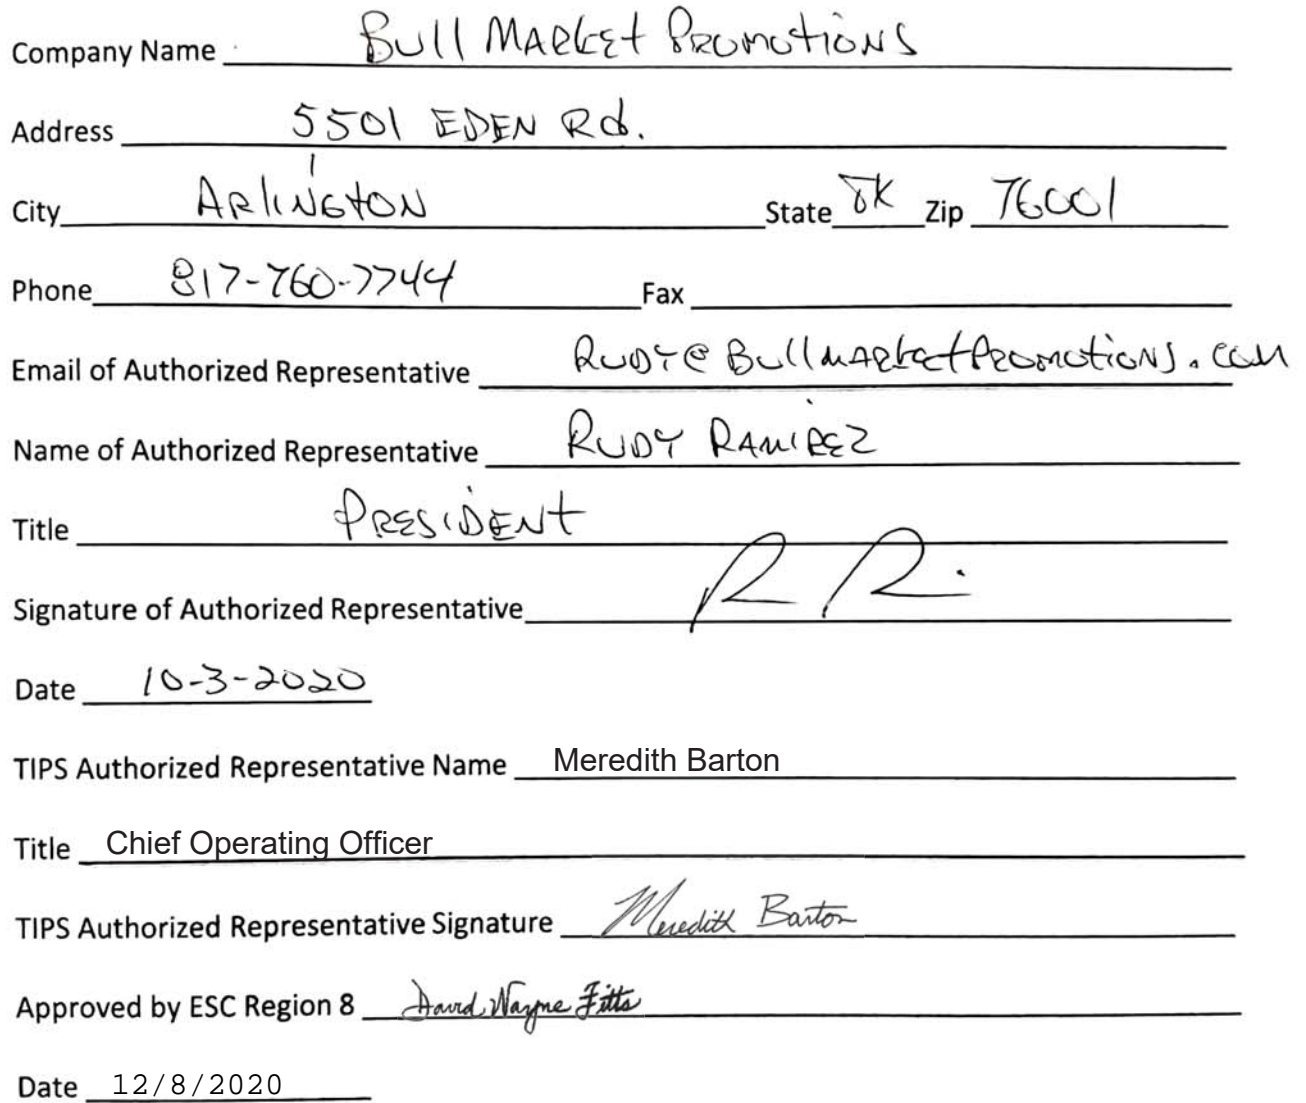 Company Name Bull Market Promotions
Address 5501 EDEN Rd.
City Arlington State Zip 76001
Phone 817-760-7744 Fax
Email of Authorized Representative Rudy@BullmarketPromotions.com
Name of Authorized Representative Rudy Ramirez
Title President
Signature of Authorized Representative
Date 10-3-2020
TIPS Authorized Representative Name Meredith Barton
Title Chief Operating Officer
TIPS Authorized Representative Signature Meredith Barton
Approved by ESC Region 8 David Wayne Fitts
Date 12/8/2020